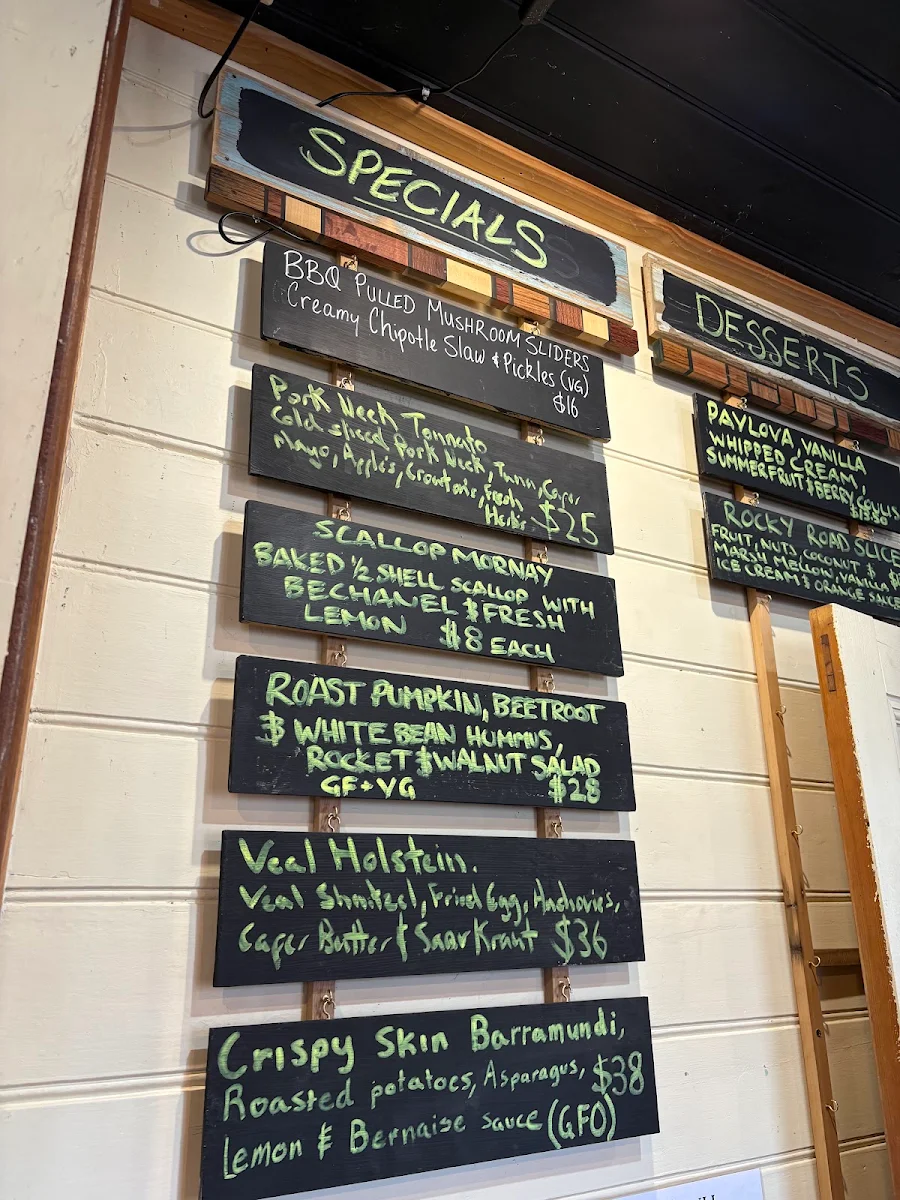 SPECIALS
BBQ PULLED MUSHROOM SLIDERS
Creamy Chipotle Slaw & Pickles (VG)
$16
Pork Neck Tonnato
Cold sliced Pork Neck, Tuna, Caper
Mayo, Apples, Croutons, Fresh
Herbs $25
SCALLOP MORNAY
BAKED 1/2 SHELL SCALLOP WITH
BECHAMEL & FRESH
LEMON $8 EACH
ROAST PUMPKIN, BEETROOT
& WHITE BEAN HUMMUS,
ROCKET & WALNUT SALAD
GF+VG $28
Veal Holstein.
Veal Shnitzel, Fried Egg, Anchovies,
Caper Butter & Saur Kraut $36
Crispy Skin Barramundi,
Roasted potatoes, Asparagus, $38
Lemon & Bernaise sauce (GFO)
DESSERTS
PAVLOVA, VANILLA
WHIPPED CREAM,
SUMMERFRUIT & BERRY COULIS
ROCKY ROAD SLICE
FRUIT, NUTS, COCONUT &
MARSHMELLOW, VANILLA
ICE CREAM & ORANGE SAUCE